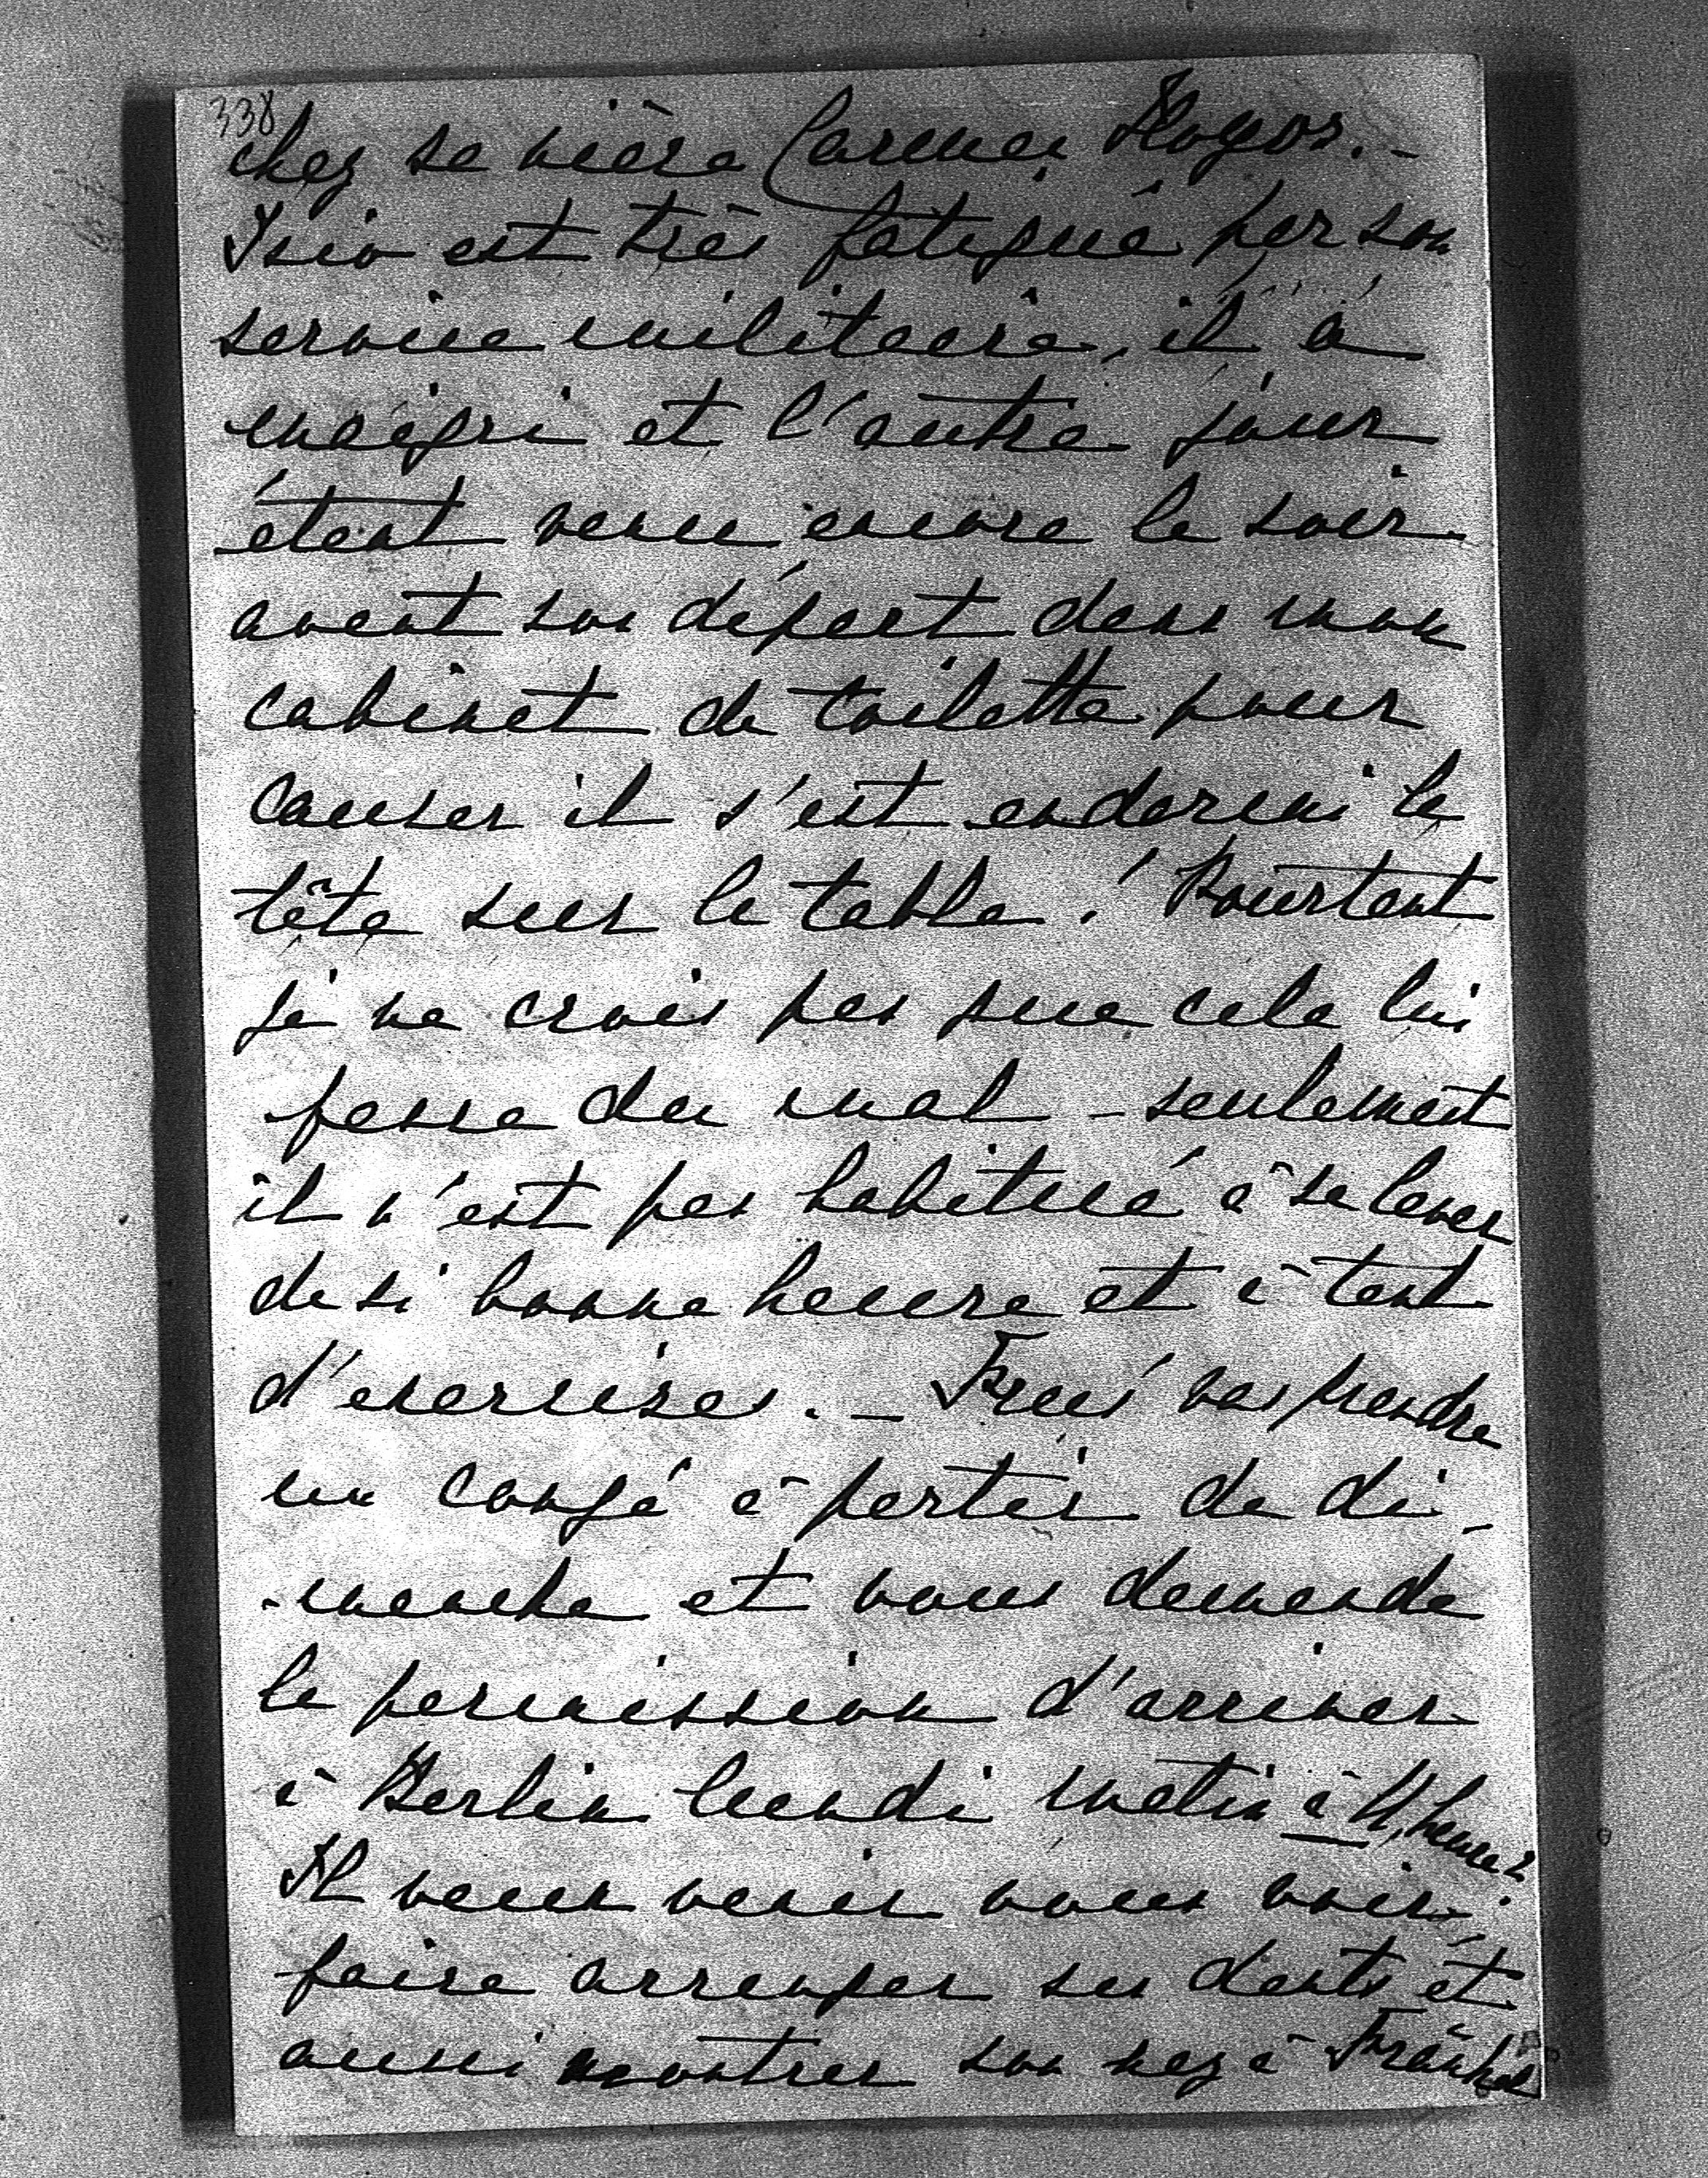 338
chez sa mère Carmen Hoyos. -
Isio est très fatigué par son
service militaire, il a
maigri et l'autre jour
étant venu encore le soir
avant son départ dans mon
cabinet de toilette pour
causer il s'est endormi la
tête sur la table! Pourtant
je ne crois pas que cela lui
fasse du mal - seulement
il n'est pas habitué à se lever
de si bonne heure et à tant
d'exercises. - Früi vas prendre
un congé à partir de di-
-manche et vous demande
la permission d'arriver
à Berlin lundi matin à 11 heures.
Il veux venir vous voir,
faire arranger ses dents et
aussi montrer son nez à Fränkel